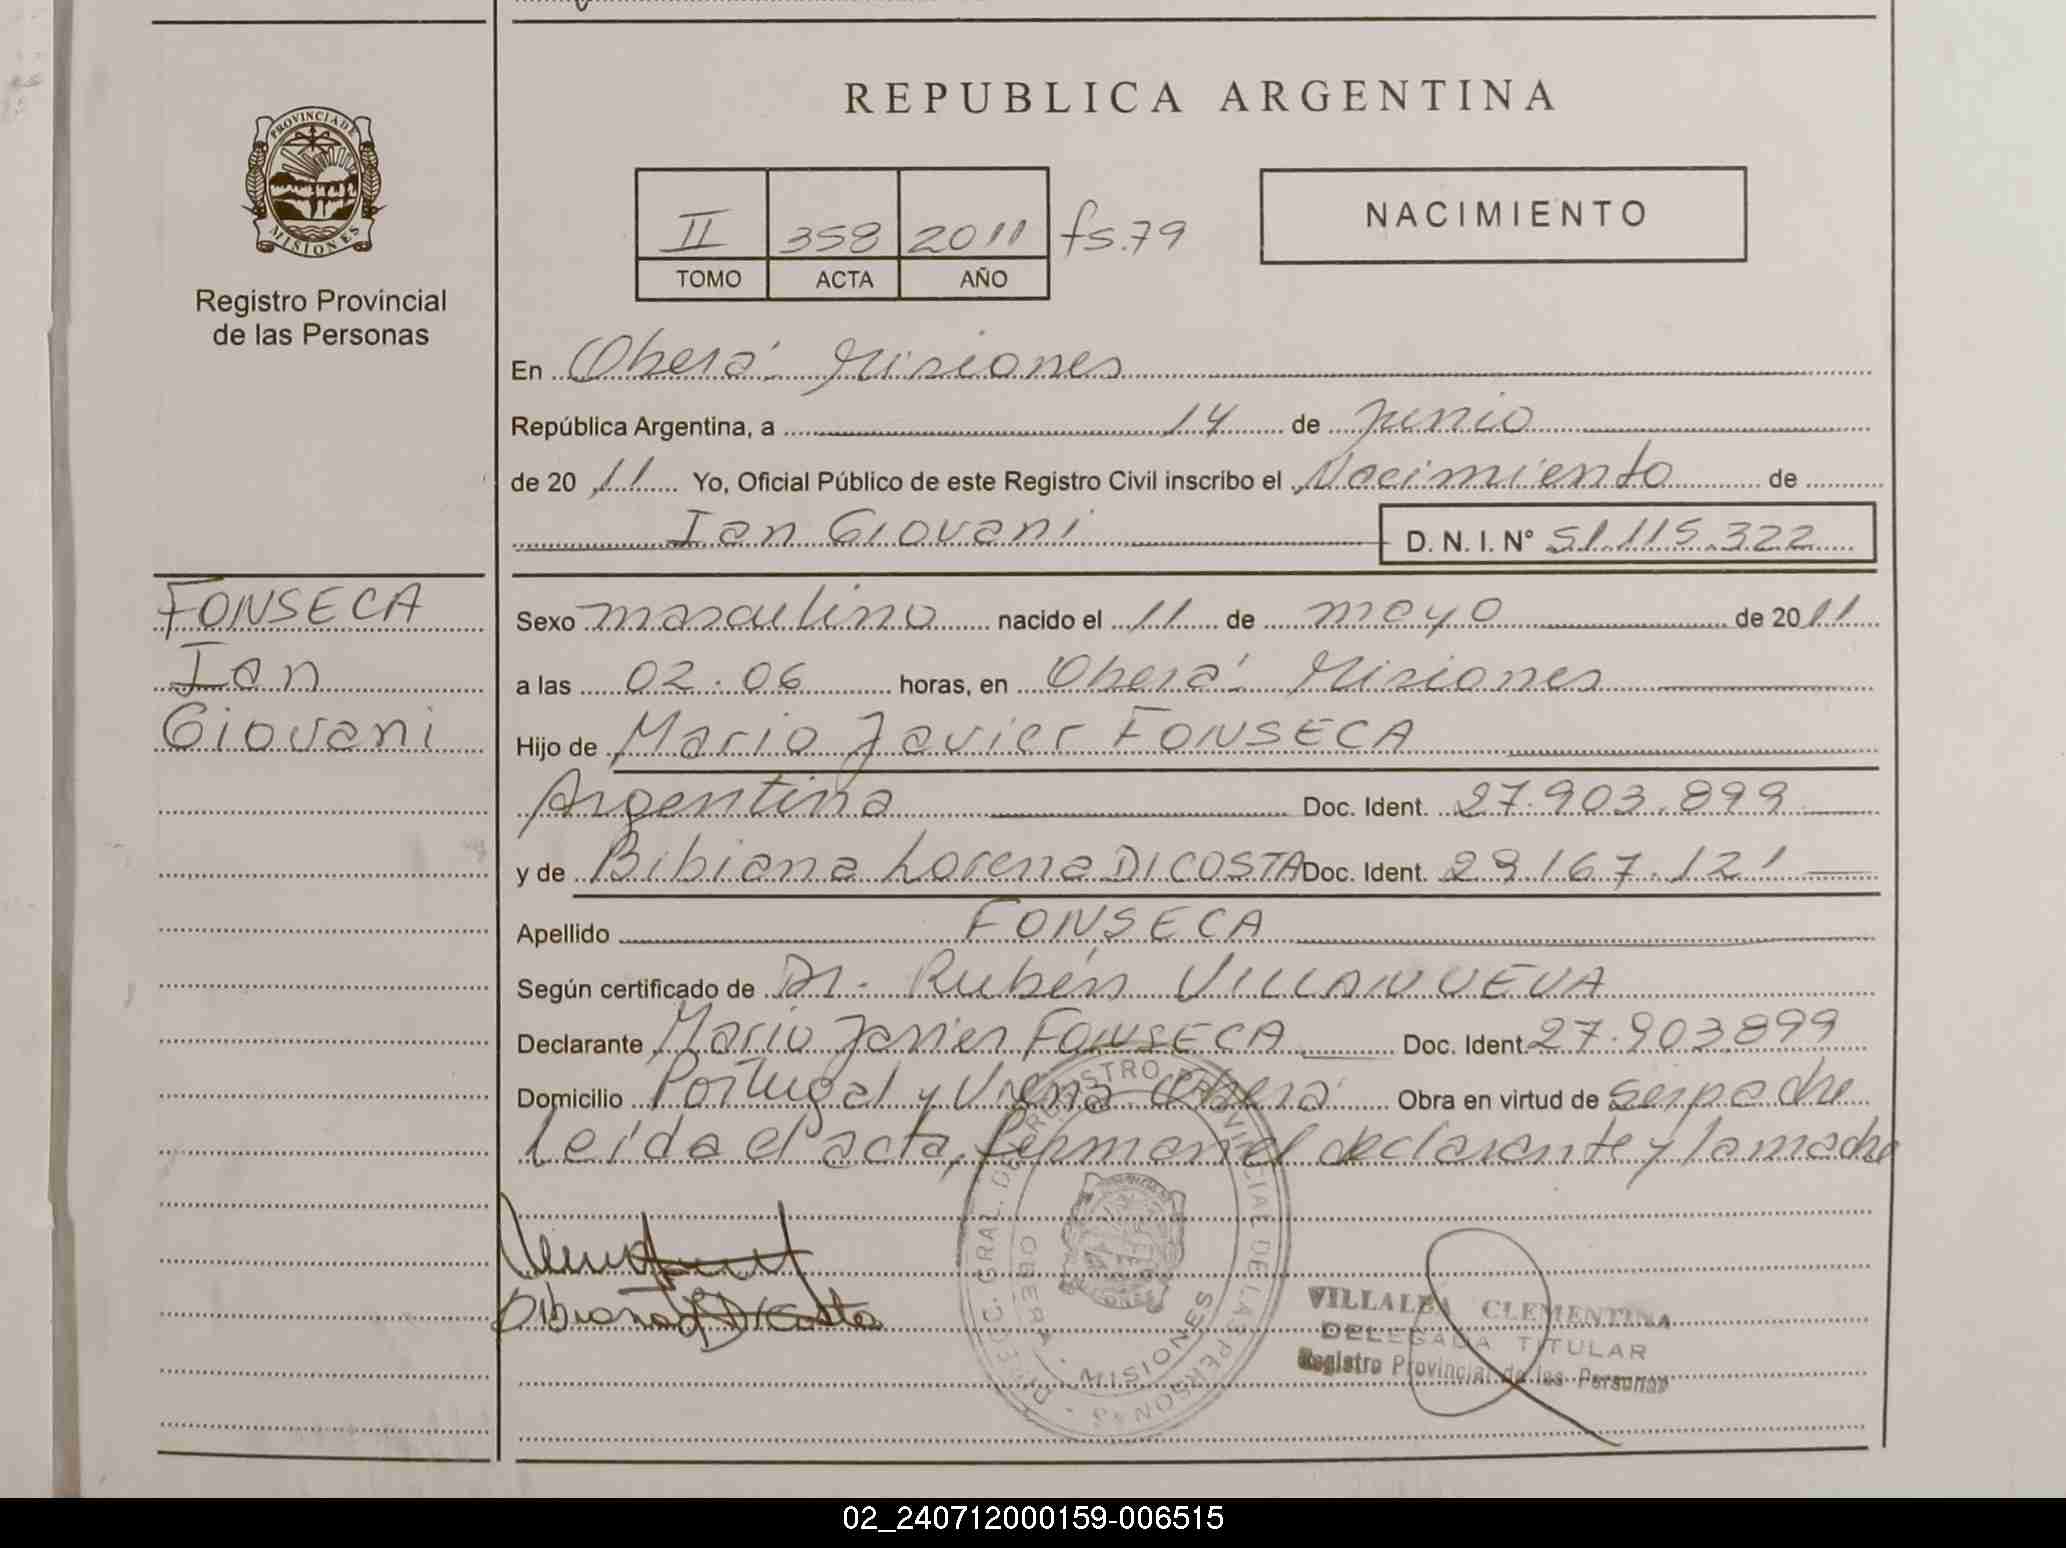 REPUBLICA ARGENTINA
PROVINCIA DE
MISIONES
Registro Provincial
de las Personas
II 358 2011 fs.79
TOMO ACTA AÑO
NACIMIENTO
En Oberá Misiones
República Argentina, a 14 de junio
de 2011 Yo, Oficial Público de este Registro Civil inscribo el Nacimiento de
Ian Giovani D. N. I. N° 51.115.322
FONSECA
Ian
Giovani
Sexo masculino nacido el 11 de mayo de 2011
a las 02.06 horas, en Oberá Misiones
Hijo de Mario Javier FONSECA
Argentina Doc. Ident. 27.903.899
y de Bibiana Lorena DI COSTA Doc. Ident. 29.167.121
Apellido FONSECA
Según certificado de Dr. Rubén VILLANUEVA
Declarante Mario Javier FONSECA Doc. Ident. 27.903.899
Domicilio Portugal y Viena Oberá Obra en virtud de ser padre
Leída el acta, firman el declarante y la madre
DIRECC. GRAL. DEL REGISTRO PROVINCIAL DE LAS PERSONAS
OBERA - MISIONES
VILLALBA CLEMENTINA
DELEGADA TITULAR
Registro Provincial de las Personas
02_240712000159-006515